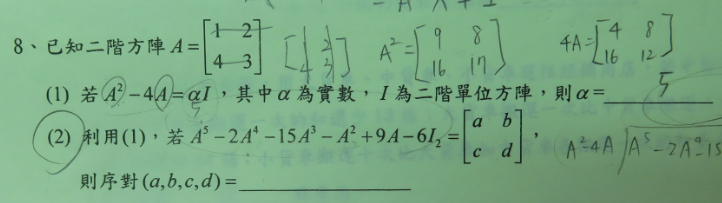 8、已知二階方陣 A = [1 2; 4 3] [1 2; 4 3] A² = [9 8; 16 17] 4A = [4 8; 16 12]
(1) 若 A² − 4A = αI，其中 α 為實數，I 為二階單位方陣，則 α = 5
5
(2) 利用(1)，若 A⁵ − 2A⁴ − 15A³ − A² + 9A − 6I₂ = [a b; c d]， A²−4A ) A⁵ − 2A⁴ − 15
則序對 (a,b,c,d) =